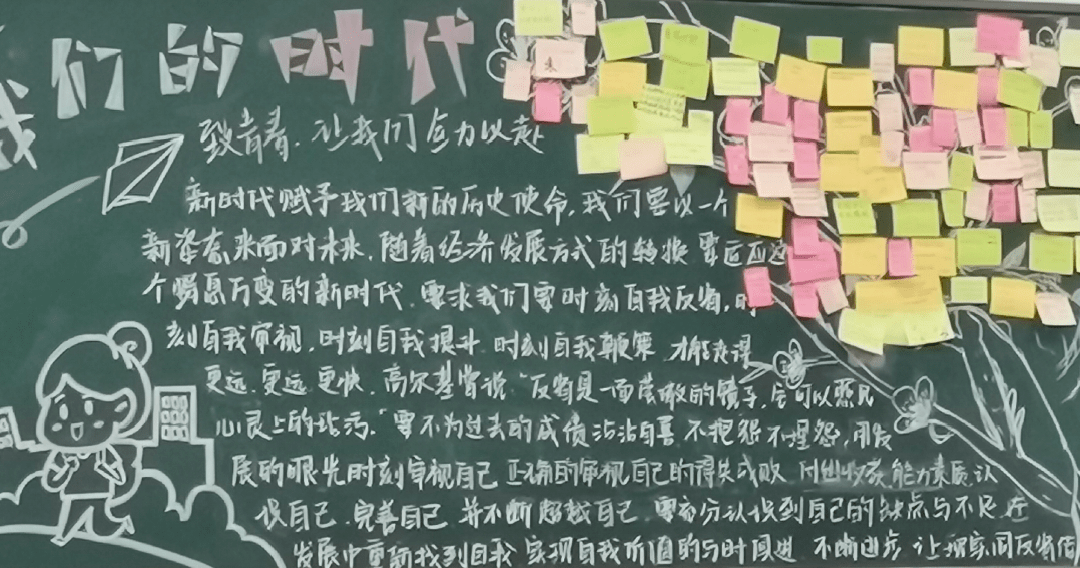 我们的时代
致青春，让我们全力以赴
新时代赋予我们新的历史使命，我们要以一个
新姿态来面对未来，随着经济发展方式的转换 要适应这
个瞬息万变的新时代，要求我们要时刻自我反省，时
刻自我审视，时刻自我提升 时刻自我鞭策，才能走得
更远、更远、更快，高尔基曾说“反省是一面莹澈的镜子，它可以照见
心灵上的玷污。”要不为过去的成绩沾沾自喜 不抱怨 不埋怨，用发
展的眼光时刻审视自己 正确的审视自己的得失成败 付出收获 能力素质、认
识自己、完善自己 并不断超越自己，要充分认识到自己的缺点与不足 在
发展中重新找到自我 实现自我价值的与时俱进 不断进步 让